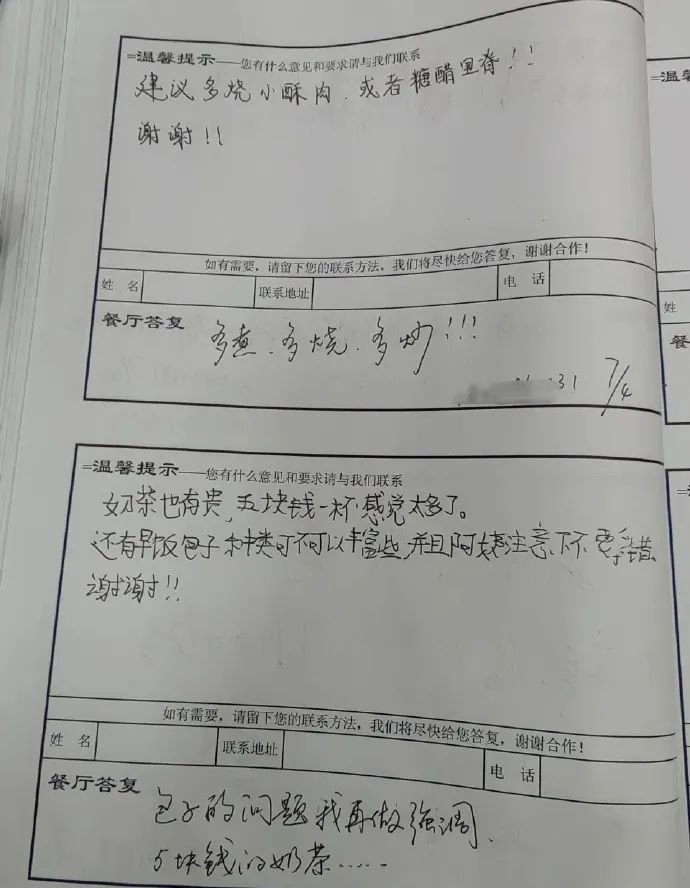 =温馨提示——您有什么意见和要求请与我们联系
建议多烧小酥肉.或者糖醋里脊!!
谢谢!!
如有需要,请留下您的联系方法,我们将尽快给您答复,谢谢合作!
姓 名 联系地址 电 话
餐厅答复
多煮.多烧.多炒!!!
31 7/4
=温馨提示——您有什么意见和要求请与我们联系
奶茶也有贵,五块钱一杯感觉太多了。
还有早饭包子种类可不可以丰富些,并且阿姨注意下不要弄错
谢谢!!
如有需要,请留下您的联系方法,我们将尽快给您答复,谢谢合作!
姓 名 联系地址 电 话
餐厅答复
包子的问题我再做强调、
5块钱的奶茶……
=温馨
姓
餐